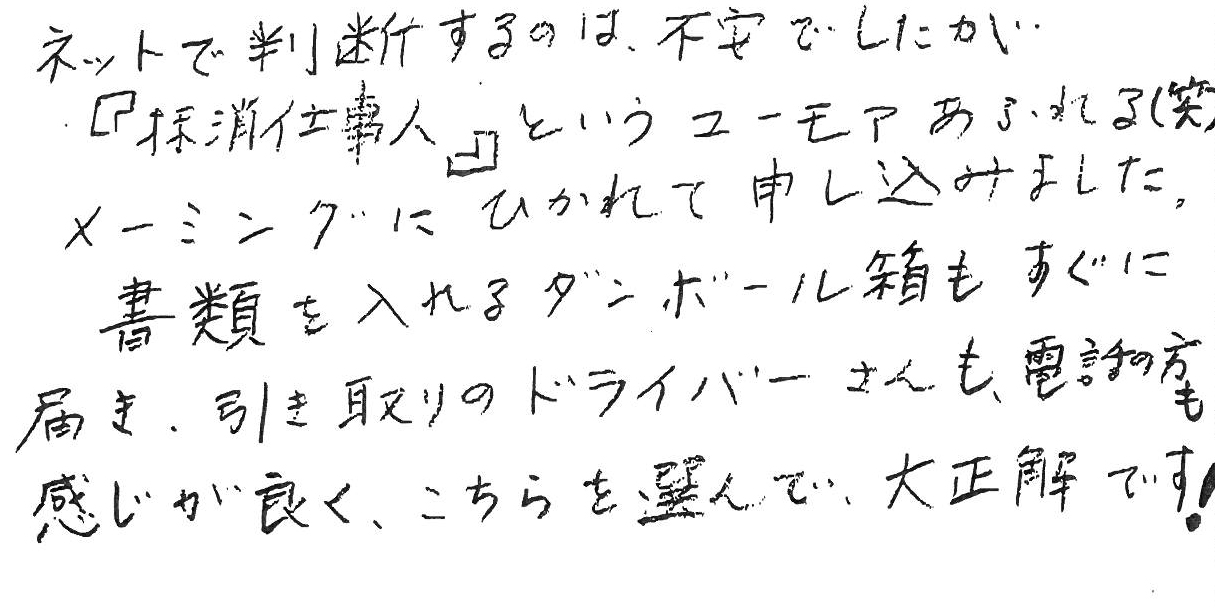 ネットで判断するのは、不安でしたが…
『抹消仕事人』というユーモアあふれる(笑)
メーミングにひかれて申し込みました。
書類を入れるダンボール箱もすぐに
届き、引き取りのドライバーさんも、電話の方も
感じが良く、こちらを選んで、大正解です!